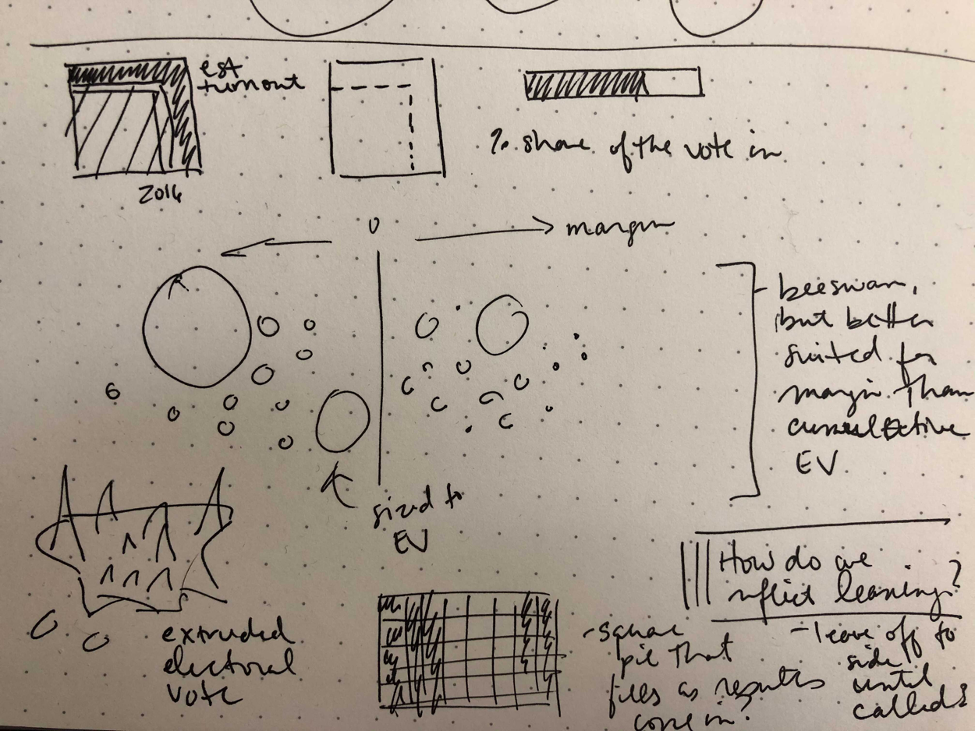 est
turnout
2016
% share of the vote in
0
margin
beeswarm,
but better
suited for
margin than
EV
sized to
EV
extruded
electoral
vote
How do we
leaning?
- square
pie that
fills as results
come in?
- leave off to
side
until
called?